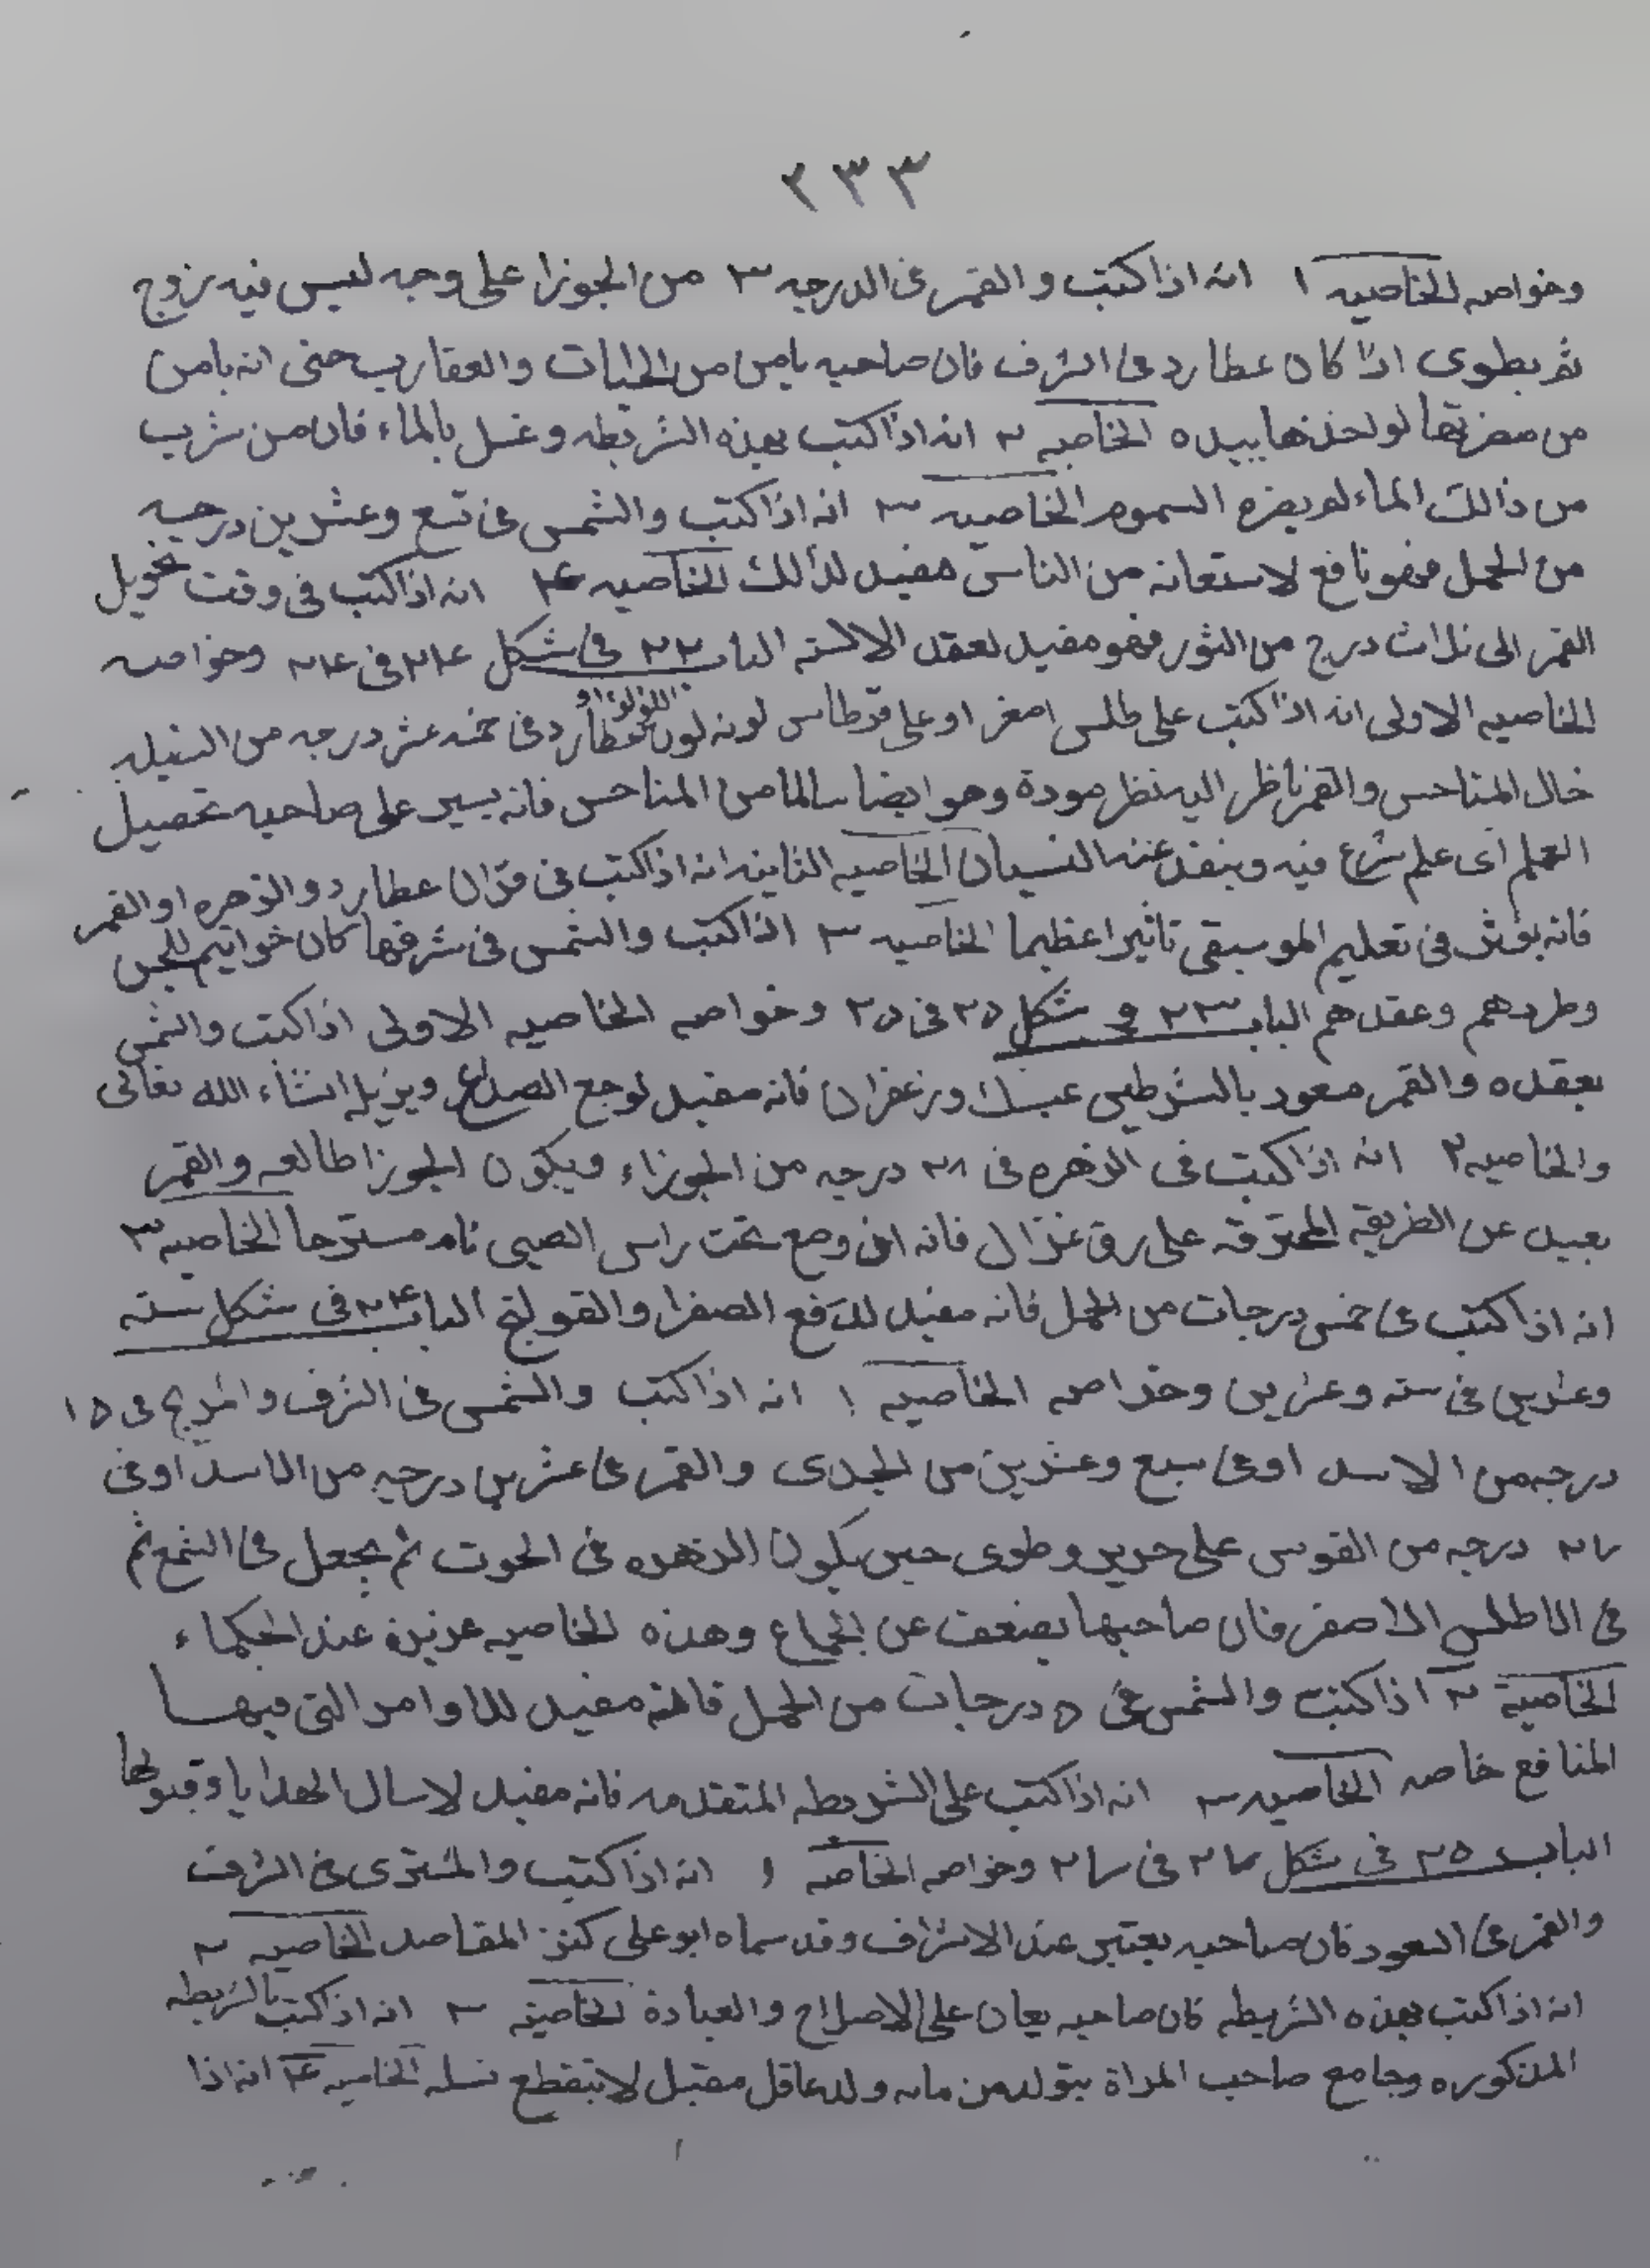 ٢٣٣
وخواصه الخاصيه ١ انه اذا كتب والقمر فى الدرجه ٣ من الجوزا على وجه ليس فيه زوج
ثم يطوى اذا كان عطارد فى الشرف فان صاحبه يامن من الحيات والعقارب حتى انه يامن
من مضرتها لو اخذها بيده الخاصيه ٢ انه اذا كتب بهذه الشريطه وغسل بالماء فان من شرب
من ذالك الماء لم يضره السموم الخاصيه ٣ انه اذا كتب والشمس فى تسع وعشرين درجه
من الحمل فهو نافع لاستعانه من الناس مفيد لذالك الخاصيه ۴ انه اذا كتب فى وقت تحويل
القمر الى ثلاث درج من الثور فهو مفيد لعقد الالسنه الباب ٢٢ فى شكل ٢۴ فى ٢۴ وخواصه
الخاصيه الاولى انه اذا كتب على طلس اصفر او على قرطاس لونه لون اللؤلؤ او عطارد فى خمسه عشر درجه من السنبله
خال المناحس والقمر ناظر اليه نظر مودة وهو ايضا سالما من المناحس فانه يسير على صاحبه تحصيل
العلم اى علم شرع فيه وينقذ عنه النسيان الخاصيه الثانيه انه اذا كتب فى قران عطارد والزهره او القمر
فانه يؤثر فى تعليم الموسيقى تاثيرا عظيما الخاصيه ٣ اذا كتب والشمس فى شرفها كان خواتيم للجن
وطردهم وعقدهم الباب ٢٣ فى شكل ٢۵ فى ٢۵ وخواصه الخاصيه الاولى اذا كتب والشمس
بعقده والقمر مسعود بالشرطين بمسك وزعفران فانه مفيد لوجع الصداع ويزيله انشاء الله تعالى
والخاصيه ٢ انه اذا كتبت فى الزهره فى ٢٨ درجه من الجوزاء ويكون الجوزا طالعه والقمر
بعيد عن الطريقه المحترقه على رق غزال فانه اذا وضع تحت راس الصبى نام مستريحا الخاصيه ٣
انه اذا كتب فى خمس درجات من الحمل فانه مفيد لدفع الصفرا والقولنج الباب ٢۴ فى شكل سته
وعشرين فى سته وعشرين وخواصه الخاصيه ١ انه اذا كتب والشمس فى الشرف والمريخ فى ١۵
درجه من الاسد او فى سبع وعشرين من الجدى والقمر فى عشرين درجه من الاسد او فى
درجه من القوس على حرير وطوى حين يكون الزهره فى الحوت ثم يجعل فى الشمع ثم
فى الاطلس الاصفر فان صاحبها يضعف عن الجماع وهذه الخاصيه عزيزة عند الحكماء
الخاصية ٢ اذا كتب والشمس فى ۵ درجات من الحمل فانه مفيد للاوامر التى فيها
المنافع خاصه الخاصيه ٣ انه اذا كتب على الشريطه المتقدمه فانه مفيد لارسال الهدايا وقبولها
الباب ٢۵ فى شكل ٢٧ فى ٢٧ وخواصه الخاصه ١ انه اذا كتب والمشترى فى الشرف
والقمر فى السعود فان صاحبه يعتبر عند الاشراف وقد سماه ابو على كنز المقاصد الخاصيه ٢
انه اذا كتب بهذه الشريطه فان صاحبه يعان على الاصلاح والعبادة الخاصيه ٣ انه اذا كتب بالشريطه
المذكوره وجامع صاحب المراة يتولد من مائه ولد عاقل مقبل لا ينقطع نسله الخاصيه ۴ انه اذا